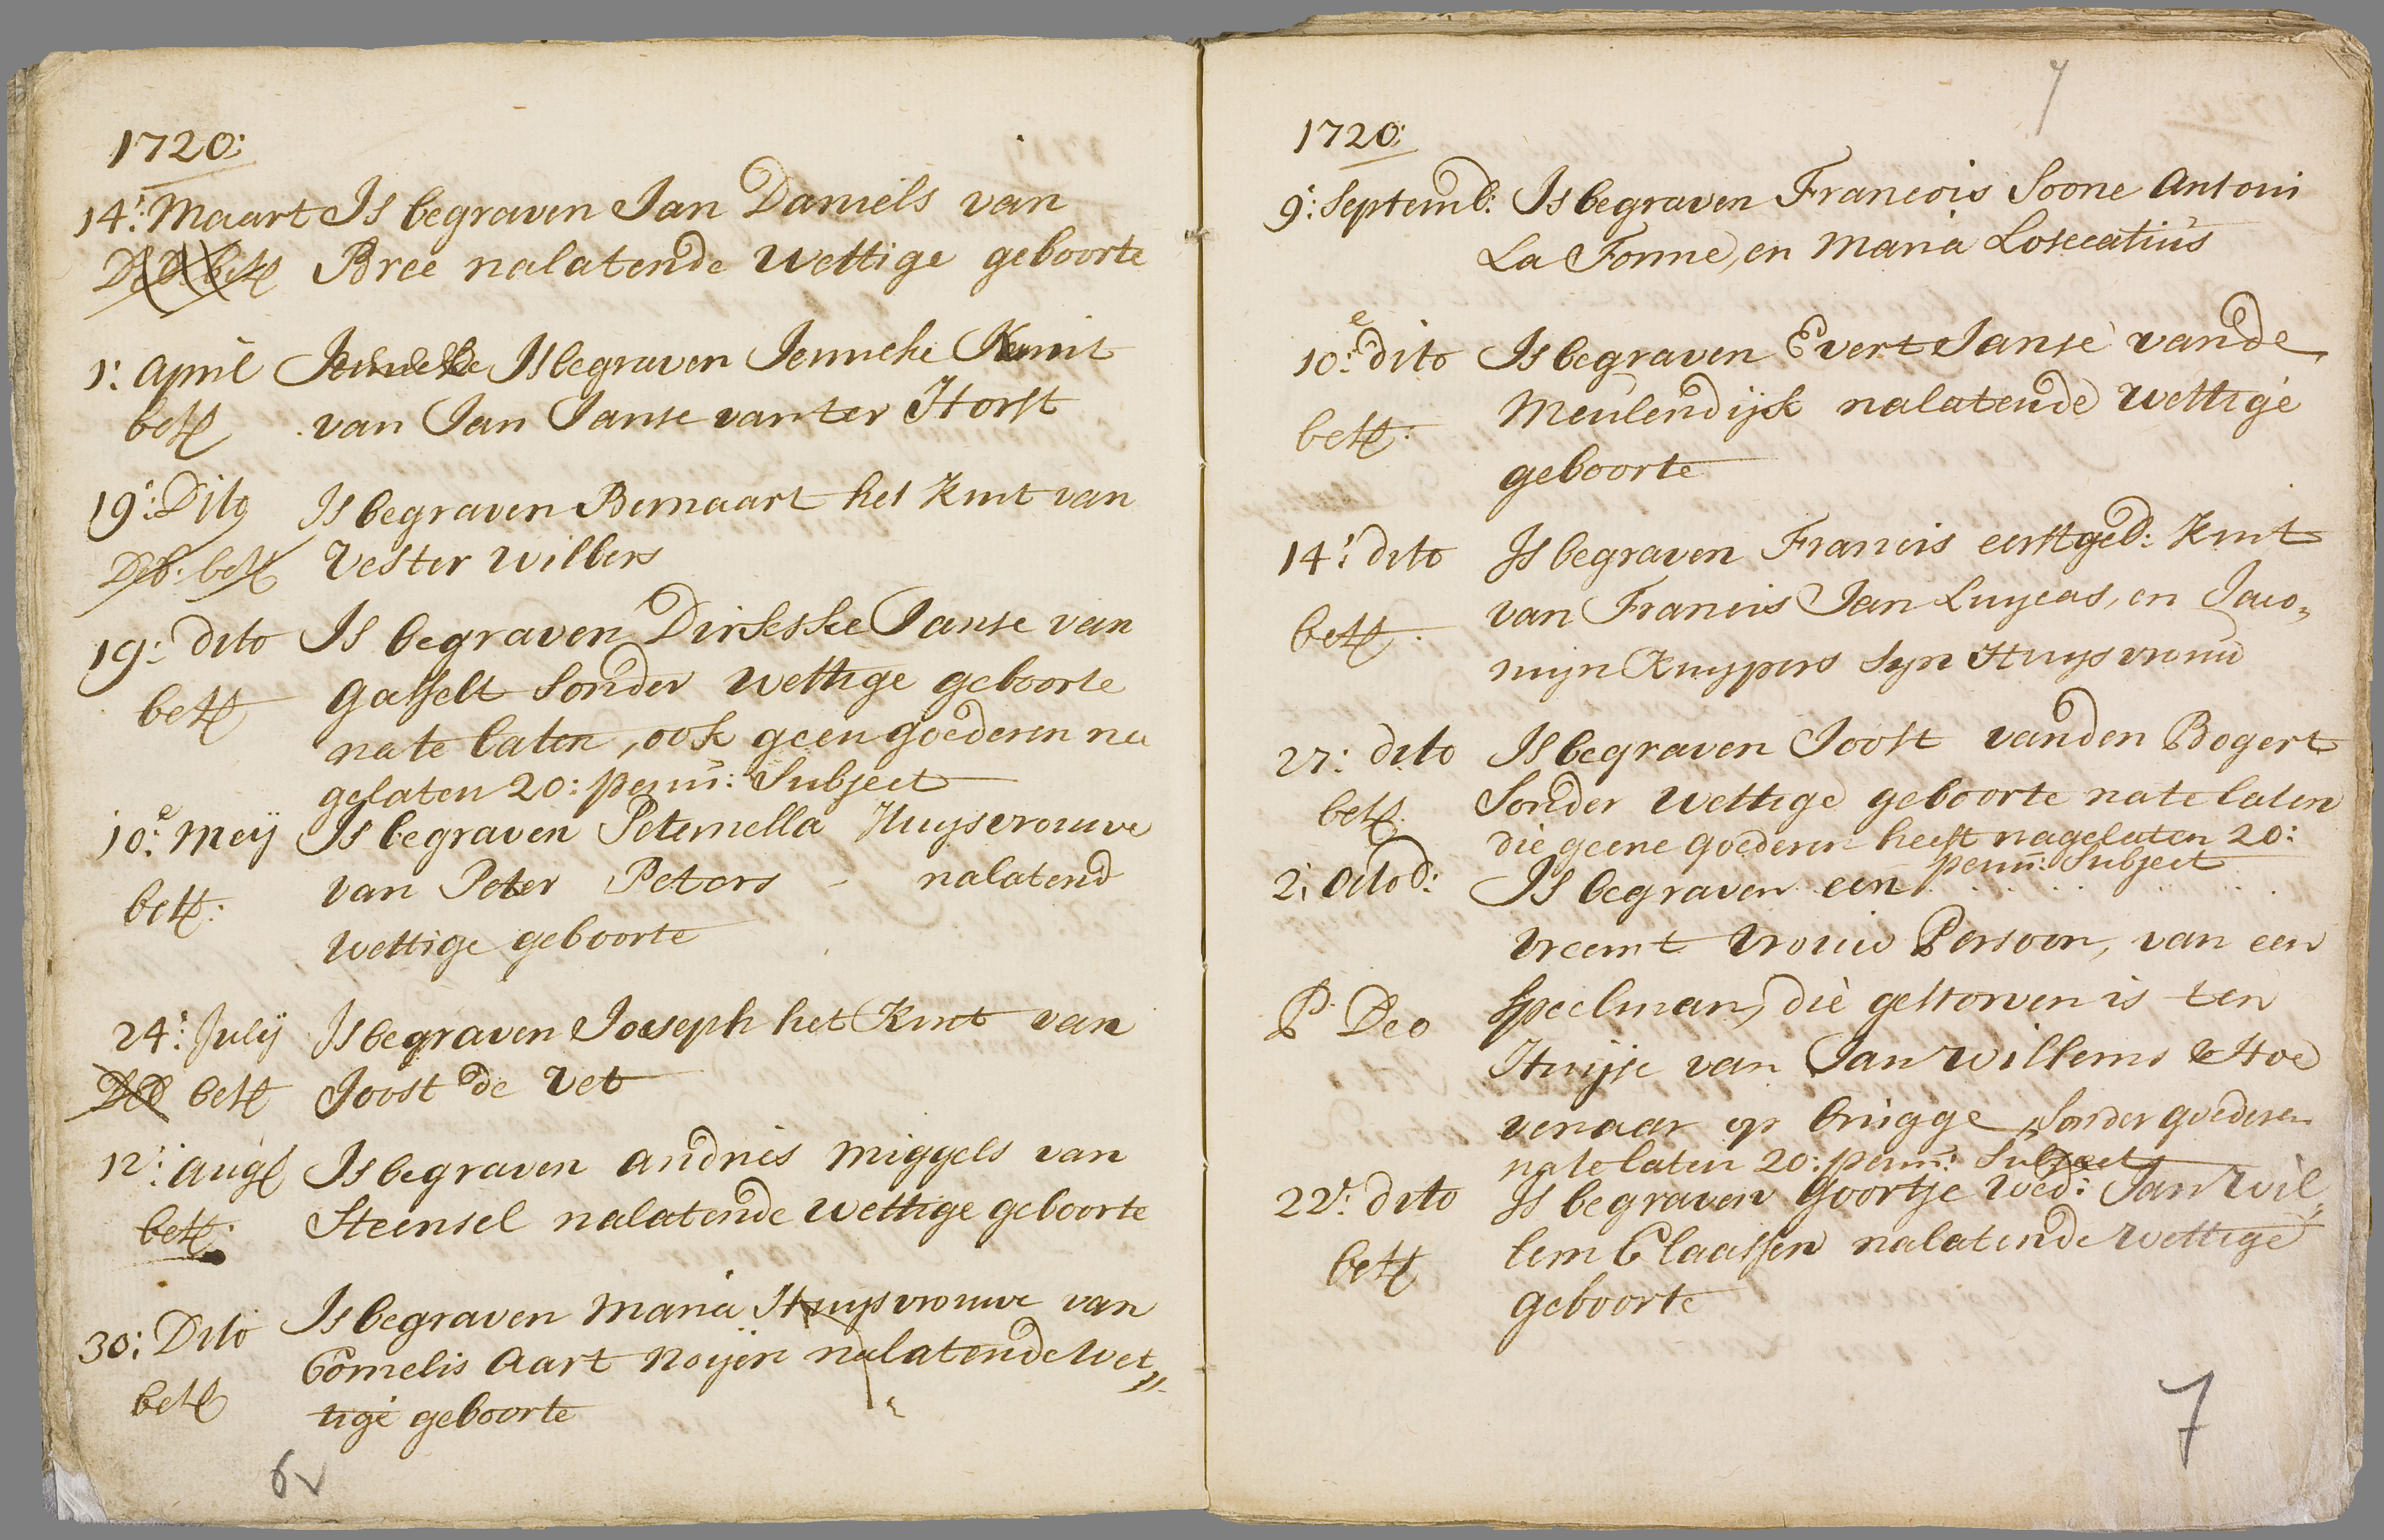 1720:
14: Maart Is begraven Jan Daniels van
Bree nalatende wettige geboorte
1: April Is begraven Jenneke Kint
bett van Jan Janse van ter Horst
19: Dito Is begraven Bernaart het Kint van
Deb: bett Vester Wilbers
19: dito Is begraven Dirkske Janse van
bett Gasselt sonder wettige geboorte
na te laten, ook geen goederen na
gelaten 20: penn: Subject
10e: Meij Is begraven Peternella Huysvrouwe
bett: van Peter Peters - nalatend
wettige geboorte
24: Julij Is begraven Joseph het Kint van
Deb bett Joost de Vet
12: Aug Is begraven Andries Miggels van
bett: Steensel nalatende wettige geboorte
30: Dito Is begraven Maria Huysvrouwe van
bett Cornelis Aart Noijen nalatende wet„
tige geboorte
6v
7
1720:
9: Septemb: Is begraven Francois Soone Antoni
La Forme, en Maria Losecatius
10e: dito Is begraven Evert Janse vande
bett: Meulendijk nalatende wettige
geboorte
14: dito Is begraven Francis eerstgeb: Kint
bett: van Francis Jan Luycas, en Jaco„
mijn Kuypers syn Huysvrouw
27: dito Is begraven Joost vanden Bogert
bett: Sonder wettige geboorte na te laten
die geene goederen heeft nagelaten 20:
penn: Subject
2: Octob: Is begraven een . . . . . .
vreemt vrouw Persoon, van een
P: Deo Speelman, die gestorven is ten
Huijse van Jan Willems Hoe
venaar op brugge, Sonder goederen
na te laten 20: penn: Subject
22: dito Is begraven Goortje wed: Jan Wil„
bett lem Claassen nalatende wettige
geboorte
7